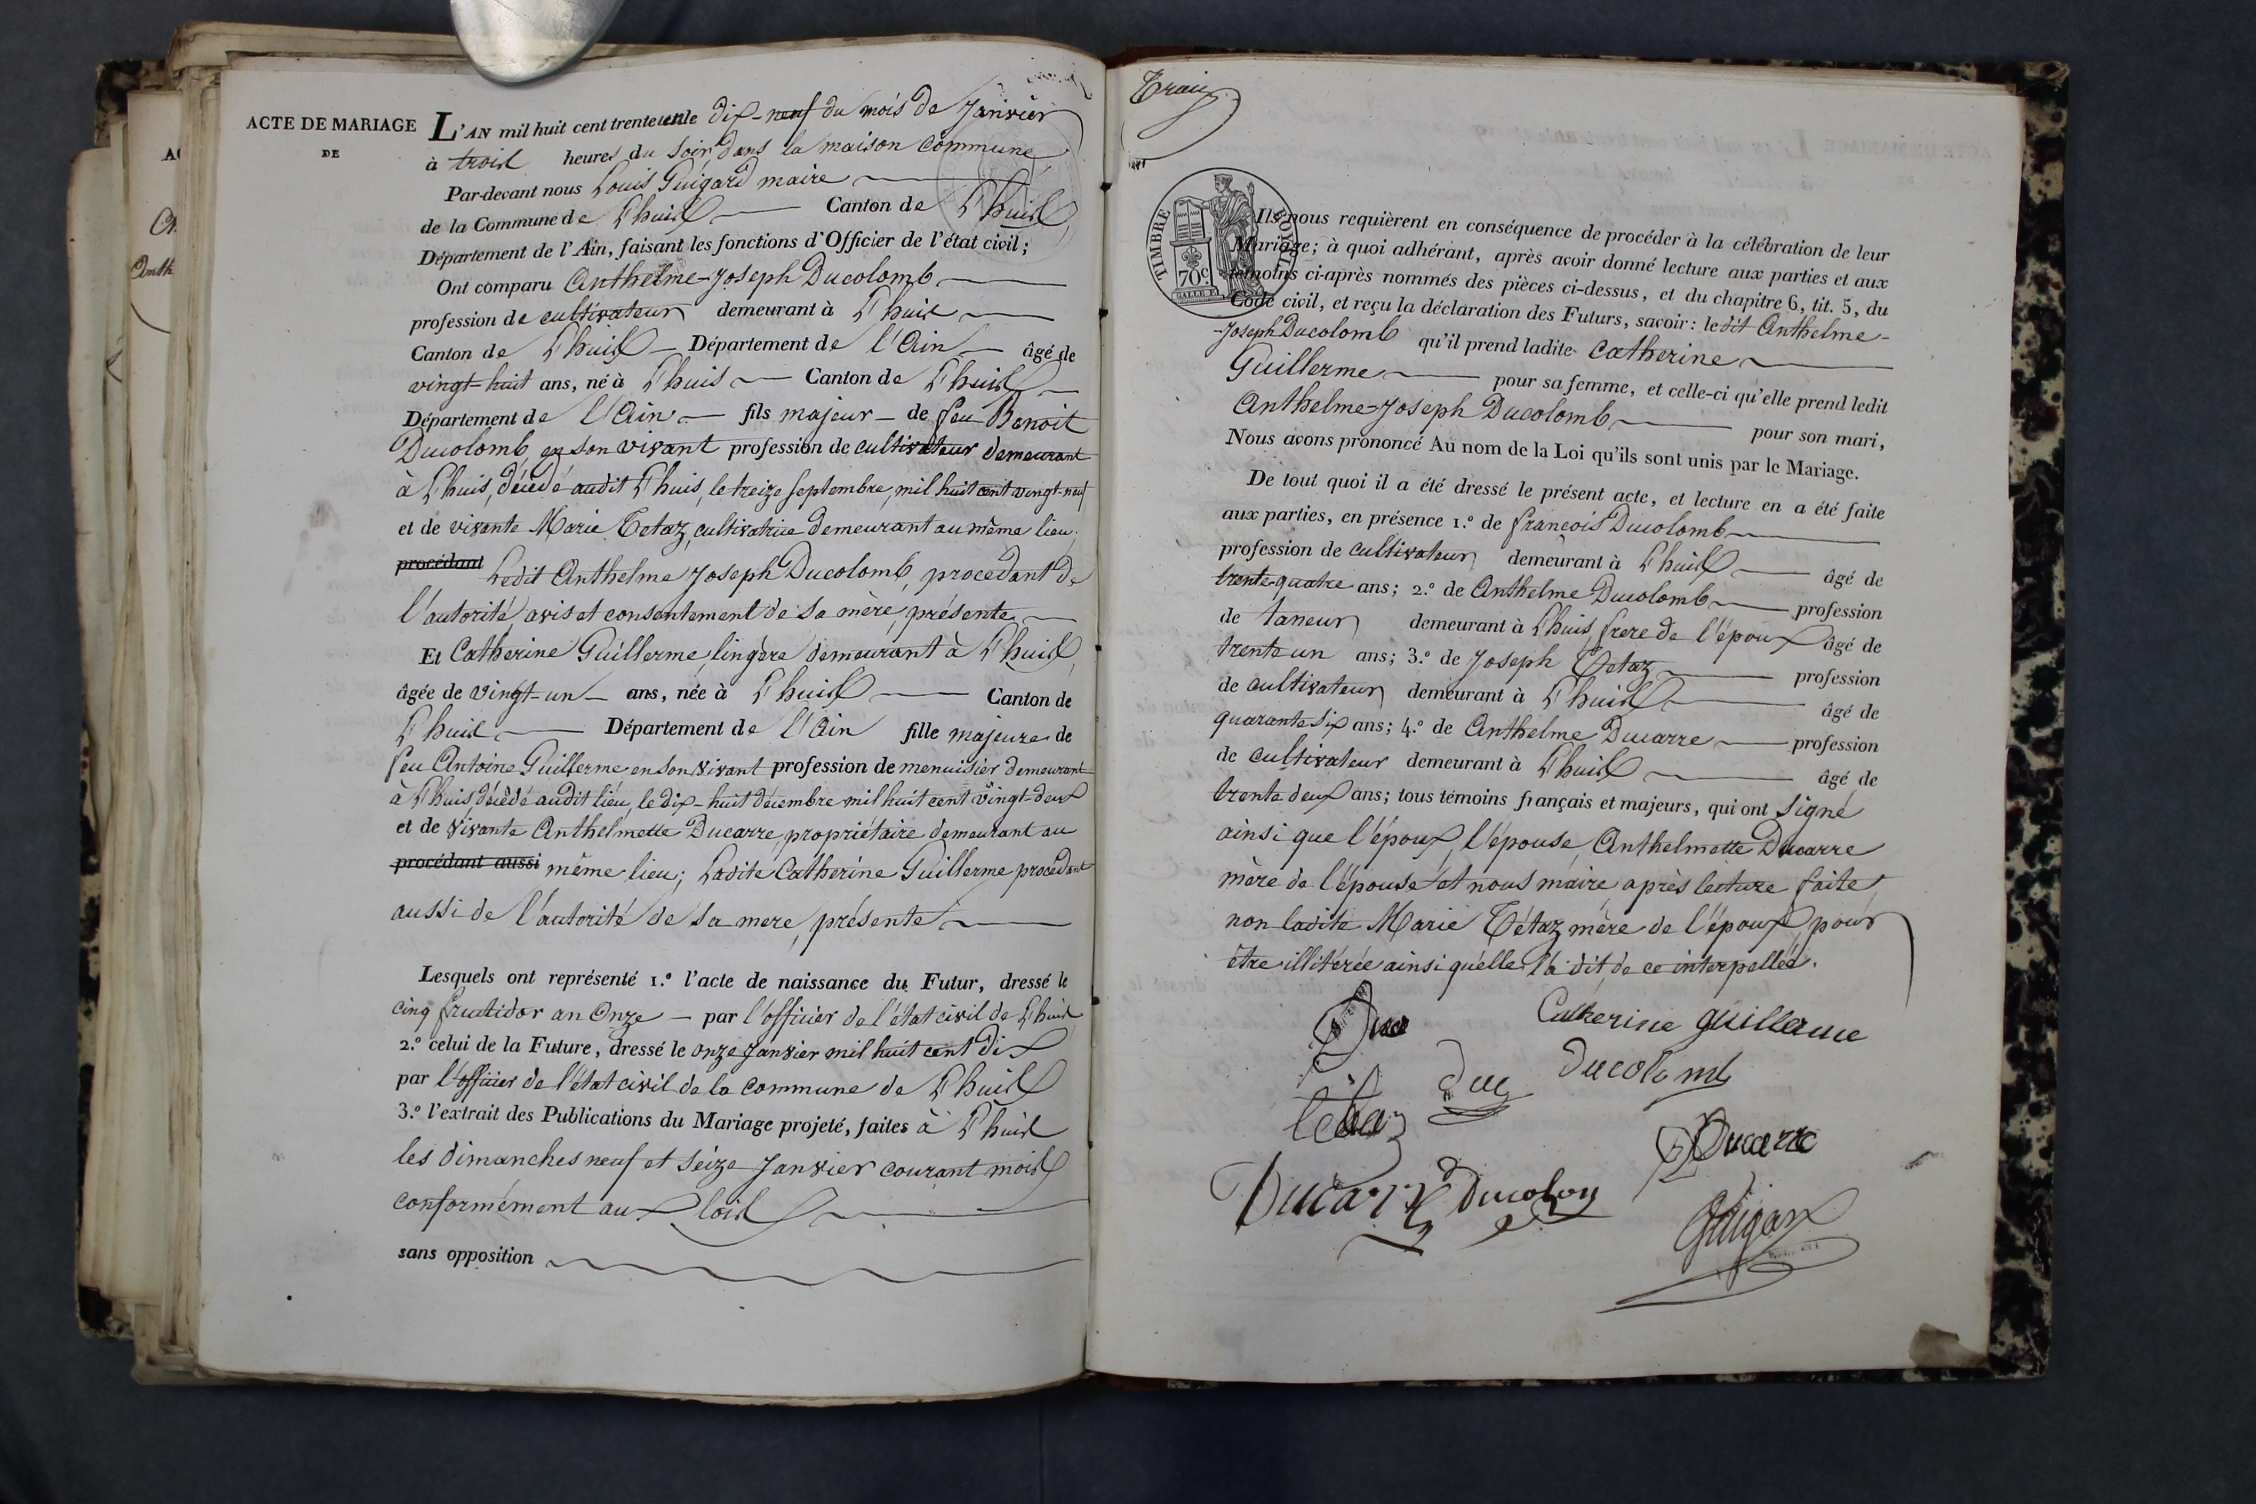 ACTE DE MARIAGE
DE
L'AN mil huit cent trente un le dix-neuf du mois de Janvier
à trois heures du soir, dans la maison commune
Par-devant nous Louis Guigard maire
de la Commune de Lhuis Canton de Lhuis
Département de l'Ain, faisant les fonctions d'Officier de l'état civil;
Ont comparu Anthelme-Joseph Ducolomb
profession de cultivateur demeurant à Lhuis
Canton de Lhuis Département de l'Ain âgé de
vingt-huit ans, né à Lhuis Canton de Lhuis
Département de l'Ain fils majeur de feu Benoit
Ducolomb, en son vivant profession de cultivateur demeurant
à Lhuis, décédé audit Lhuis, le treize septembre, mil huit cent vingt-neuf
et de vivante Marie Tetaz, cultivatrice demeurant au même lieu;
procédant Ledit Anthelme Joseph Ducolomb, procédant de
l'autorité, avis et consentement de sa mère, présente
Et Catherine Guillerme, lingère demeurant à Lhuis,
âgée de vingt-un ans, née à Lhuis Canton de
Lhuis Département de l'Ain fille majeure de
feu Antoine Guillerme en son vivant profession de menuisier demeurant
à Lhuis, décédé audit lieu, le dix-huit décembre mil huit cent vingt-deux
et de vivante Anthelmette Ducarre, propriétaire demeurant au
procédant aussi même lieu; Ladite Catherine Guillerme procédant
aussi de l'autorité de sa mere, présente
Lesquels ont représenté 1.º l'acte de naissance du Futur, dressé le
cinq fructidor an Onze par l'officier de l'état civil de Lhuis
2.º celui de la Future, dressé le onze Janvier mil huit cent dix
par l'officier de l'état civil de la commune de Lhuis
3.º l'extrait des Publications du Mariage projeté, faites à Lhuis
les dimanches neuf et seize Janvier courant mois
conformément aux lois
sans opposition
Trois
TIMBRE ROYAL
70 c.
Ils nous requièrent en conséquence de procéder à la célébration de leur
Mariage; à quoi adhérant, après avoir donné lecture aux parties et aux
témoins ci-après nommés des pièces ci-dessus, et du chapitre 6, tit. 5, du
Code civil, et reçu la déclaration des Futurs, savoir: ledit Anthelme-
-Joseph Ducolomb qu'il prend ladite Catherine
Guillerme pour sa femme, et celle-ci qu'elle prend ledit
Anthelme-Joseph Ducolomb pour son mari,
Nous avons prononcé Au nom de la Loi qu'ils sont unis par le Mariage.
De tout quoi il a été dressé le présent acte, et lecture en a été faite
aux parties, en présence 1.º de françois Ducolomb
profession de cultivateur demeurant à Lhuis âgé de
trente-quatre ans; 2.º de Anthelme Ducolomb profession
de taneur demeurant à Lhuis, frere de l'époux âgé de
trente un ans; 3.º de Joseph Tetaz profession
de cultivateur demeurant à Lhuis âgé de
quarante six ans; 4.º de Anthelme Ducarre profession
de cultivateur demeurant à Lhuis âgé de
trente deux ans; tous témoins français et majeurs, qui ont signé
ainsi que l'époux, l'épouse, Anthelmette Ducarre
mère de l'épouse et nous maire, après lecture faite,
non ladite Marie Tétaz mère de l'époux, pour
être illitérée ainsi qu'elle l'a dit, de ce interpellée.
Duc Catherine guillerme
Duc Ducolomb
tetaz
Ducarre
Ducarre Ducolon
Guigar